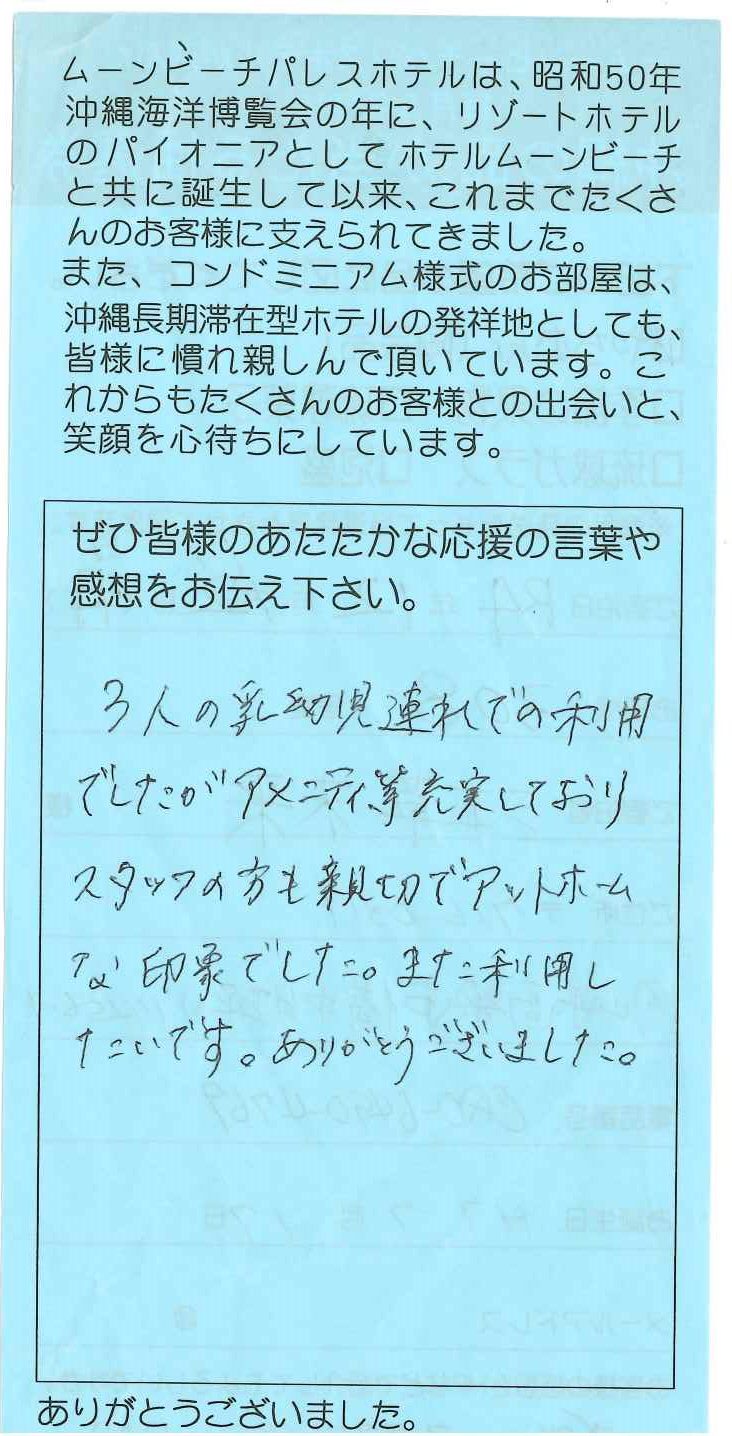 ムーンビーチパレスホテルは、昭和50年
沖縄海洋博覧会の年に、リゾートホテル
のパイオニアとしてホテルムーンビーチ
と共に誕生して以来、これまでたくさ
んのお客様に支えられてきました。
また、コンドミニアム様式のお部屋は、
沖縄長期滞在型ホテルの発祥地としても、
皆様に慣れ親しんで頂いています。こ
れからもたくさんのお客様との出会いと、
笑顔を心待ちにしています。
ぜひ皆様のあたたかな応援の言葉や
感想をお伝え下さい。
3人の乳幼児連れでの利用
でしたがアメニティ等充実しており
スタッフの方も親切でアットホーム
な印象でした。また利用し
たいです。ありがとうございました。
ありがとうございました。